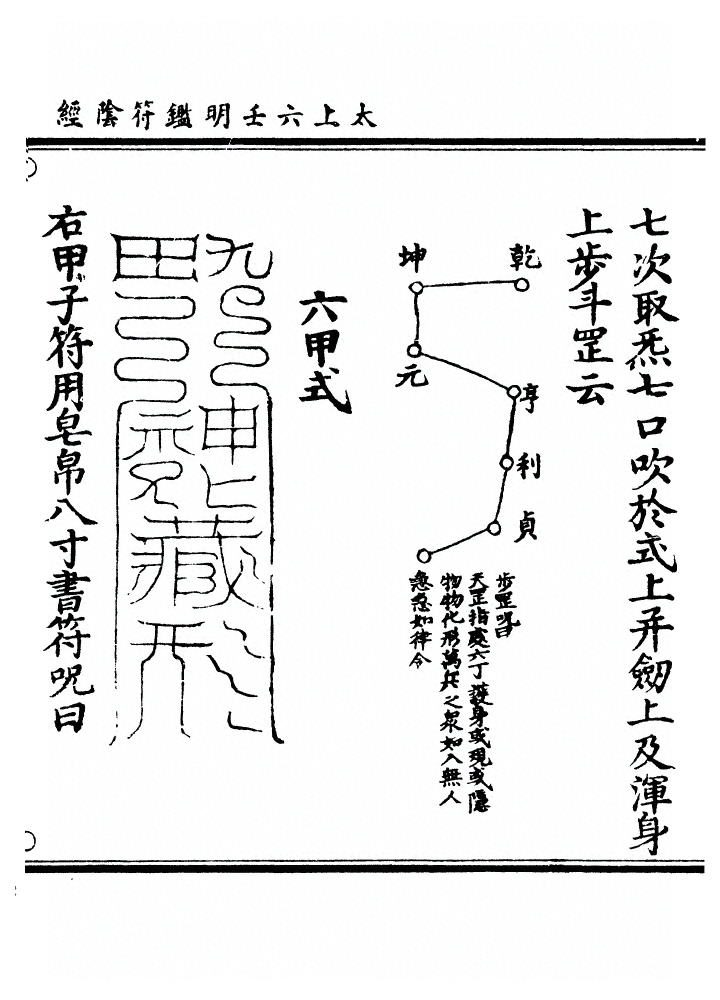 太上六壬明鑑符陰經
七次取炁七口吹於式上并劒上及渾身
上步斗罡云
乾
坤
元
亨
利
貞
步罡咒曰
天罡指處六丁護身或現或隱
物物化形萬兵之衆如入無人
急急如律令
六甲式
右甲子符用皂帛八寸書符咒曰